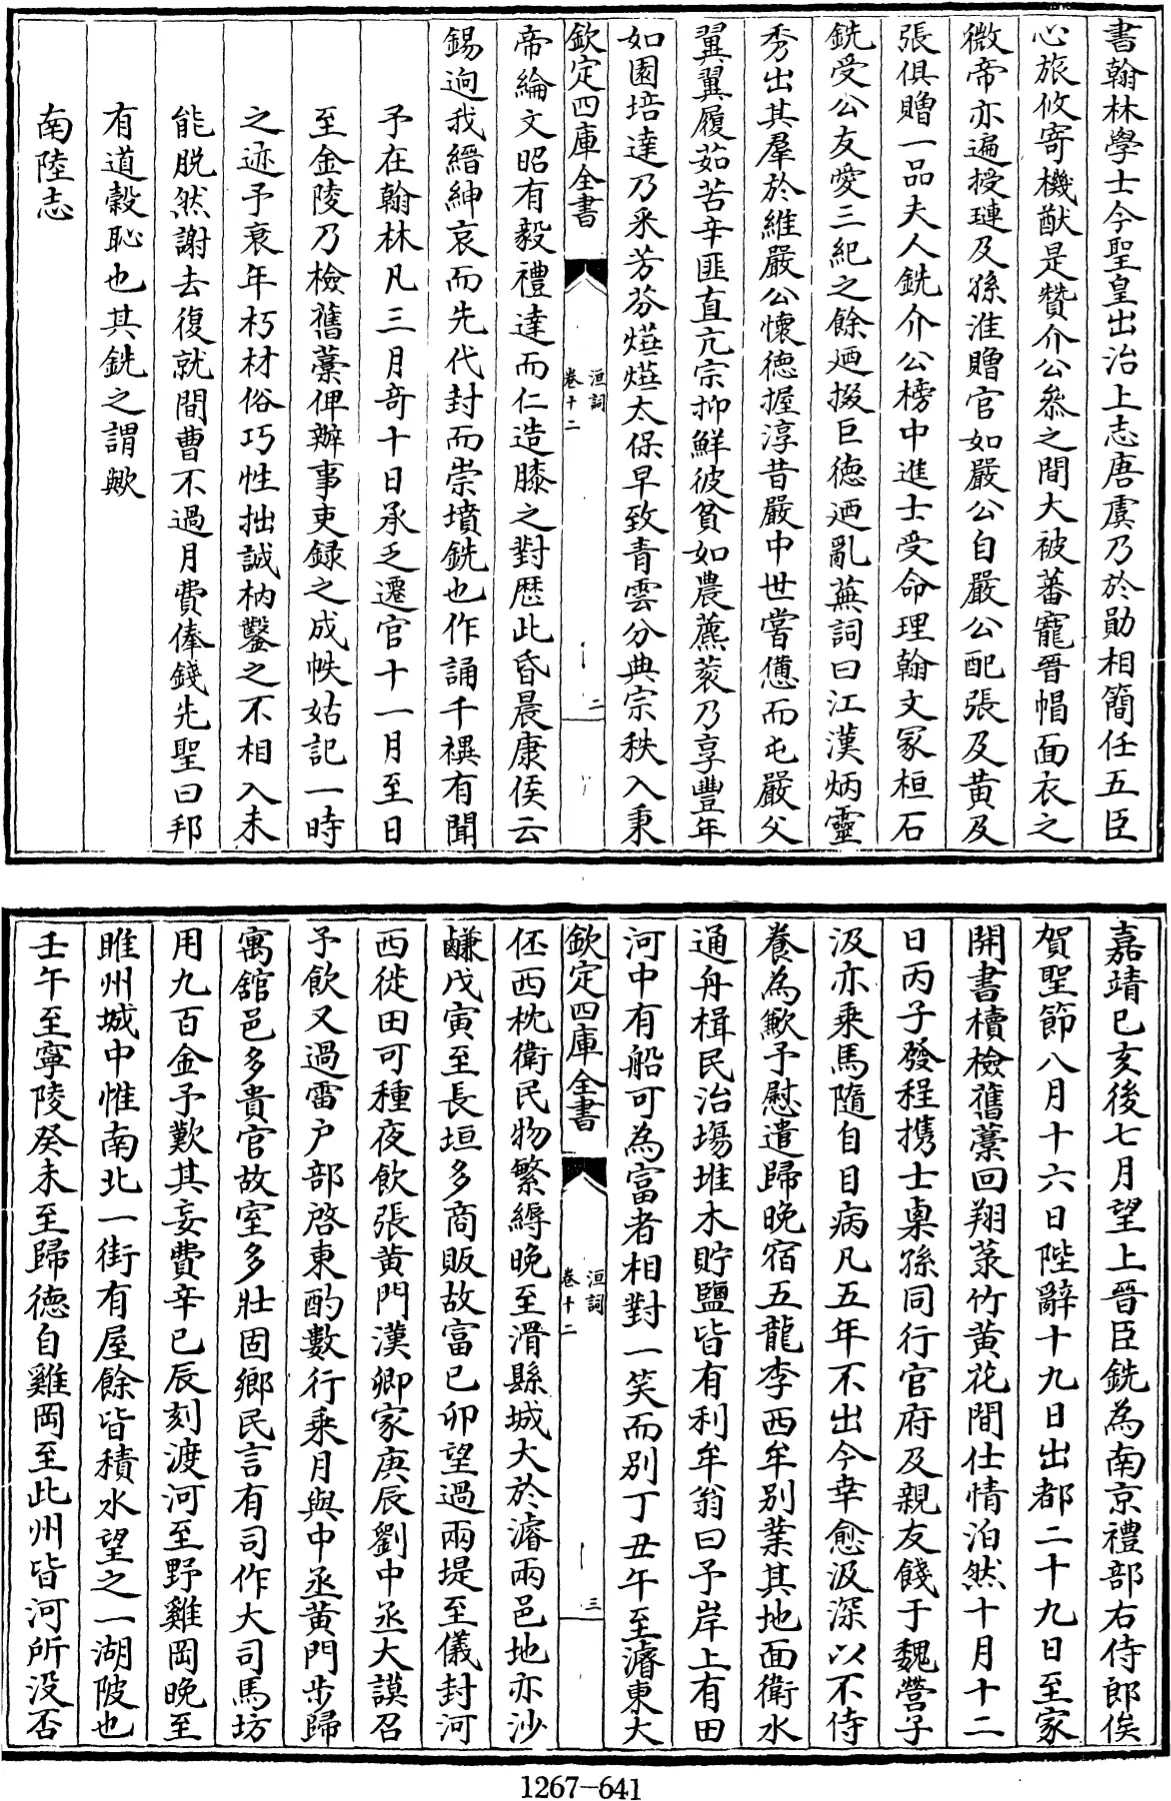 書翰林學士今聖皇出治上志唐虞乃於勛相簡任五臣
心旅攸寄機猷是贊介公叅之間大被蕃寵晉帽面衣之
微帝亦遍授璉及孫淮贈官如嚴公自嚴公配張及黄及
張俱贈一品夫人銑介公榜中進士受命理翰文冢桓石
銑受公友愛三紀之餘廼掇巨徳廼亂蕪詞曰江漢炳靈
秀出其羣於維嚴公懷徳握淳昔嚴中世嘗僡而屯嚴父
翼翼履茹苦辛匪直亢宗抑鮮彼貧如農藨蓘乃享豐年
如園培達乃采芳芬爗爗太保早致青雲分典宗秩入秉
欽定四庫全書
洹詞
卷十二
二
帝綸文昭有毅禮達而仁造膝之對歴此昏晨康侯云
錫逈我縉紳哀而先代封而崇墳銑也作誦千禩有聞
予在翰林凡三月竒十日承乏遷官十一月至日
至金陵乃檢舊藁俾辦事吏録之成帙姑記一時
之迹予衰年朽材俗巧性拙誠枘鑿之不相入未
能脱然謝去復就間曹不過月費俸錢先聖曰邦
有道榖恥也其銑之謂歟
南陸志
嘉靖已亥後七月望上晉臣銑為南京禮部右侍郎俟
賀聖節八月十六日陛辭十九日出都二十九日至家
開書櫝檢舊藁回翔菉竹黄花間仕情泊然十月十二
日丙子發程携士㮚孫同行官府及親友餞于魏營子
汲亦乘馬隨自目病凡五年不出今幸愈汲深以不侍
養為歉予慰遣歸晚宿五龍李西牟别業其地面衛水
通舟楫民治塲堆木貯鹽皆有利牟翁曰予岸上有田
河中有船可為富者相對一笑而别丁丑午至濬東大
欽定四庫全書
洹詞
卷十二
三
伾西枕衛民物繁縟晩至滑縣城大於濬兩邑地亦沙
鹻戊寅至長垣多商販故富已卯望過兩堤至儀封河
西徙田可種夜飲張黄門漢卿家庚辰劉中丞大謨召
予飲又過雷户部啓東酌數行乘月與中丞黄門步歸
寓舘邑多貴官故室多壯固鄉民言有司作大司馬坊
用九百金予歎其妄費辛已辰刻渡河至野雞岡晩至
睢州城中惟南北一街有屋餘皆積水望之一湖陂也
壬午至寧陵癸未至歸徳自雞岡至此州皆河所没否
1267-641